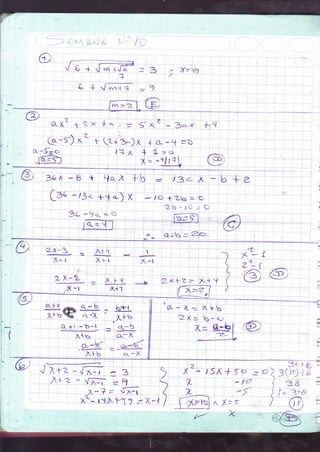 SEMANA Nº 10
①
√6 + √m+√x = 3 x=49
7
6 + √m+7 = 9
m=2 E
②
ax² + 2x + a = 5x² - 3ax + 4
(a-5)x² + (2+3a)x + a-4 = 0
a-5=0 17x + 1 = 0
a=5 x = -1/17 D
③ 36x - 8 + 4ax + b = 13cx - b + 2
(36 - 13a + 4a)x - 10 + 2b = 0
36 - 9a = 0 2b - 10 = 0
a=4 b=5
a·b = 20
④ 2x-3/x-1 = x+4/x+1 - 1/x-1
2x-2/x-1 = x+4/x+1 → 2x+2 = x+4
x=2
x²-1
2²-1
③ D
⑤ a+1/x+b - a-b/a-x = b+1/x+b
a+1-b-1/x+b = a-b/a-x
a-b/x+b = a-b/a-x
a-x = x+b
2x = b-a
x = a-b/2
⑥ √x+2 - √x-1 = 3
x+2 - √x-1 = 9
x-7 = √x-1
x²-14x+49 = x-1
x² - 15x + 50 = 0
x -10
x -5
x=10 ∧ x=5
x
3x+8
3(10)+8
38
3+8
11
B